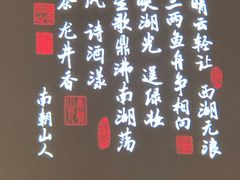 晴云轻让 西湖无浪
三两鱼舟争相向
映湖光 逞绿妆
笙歌鼎沸南湖荡
风 诗酒漾
茶 龙井香
南朝山人